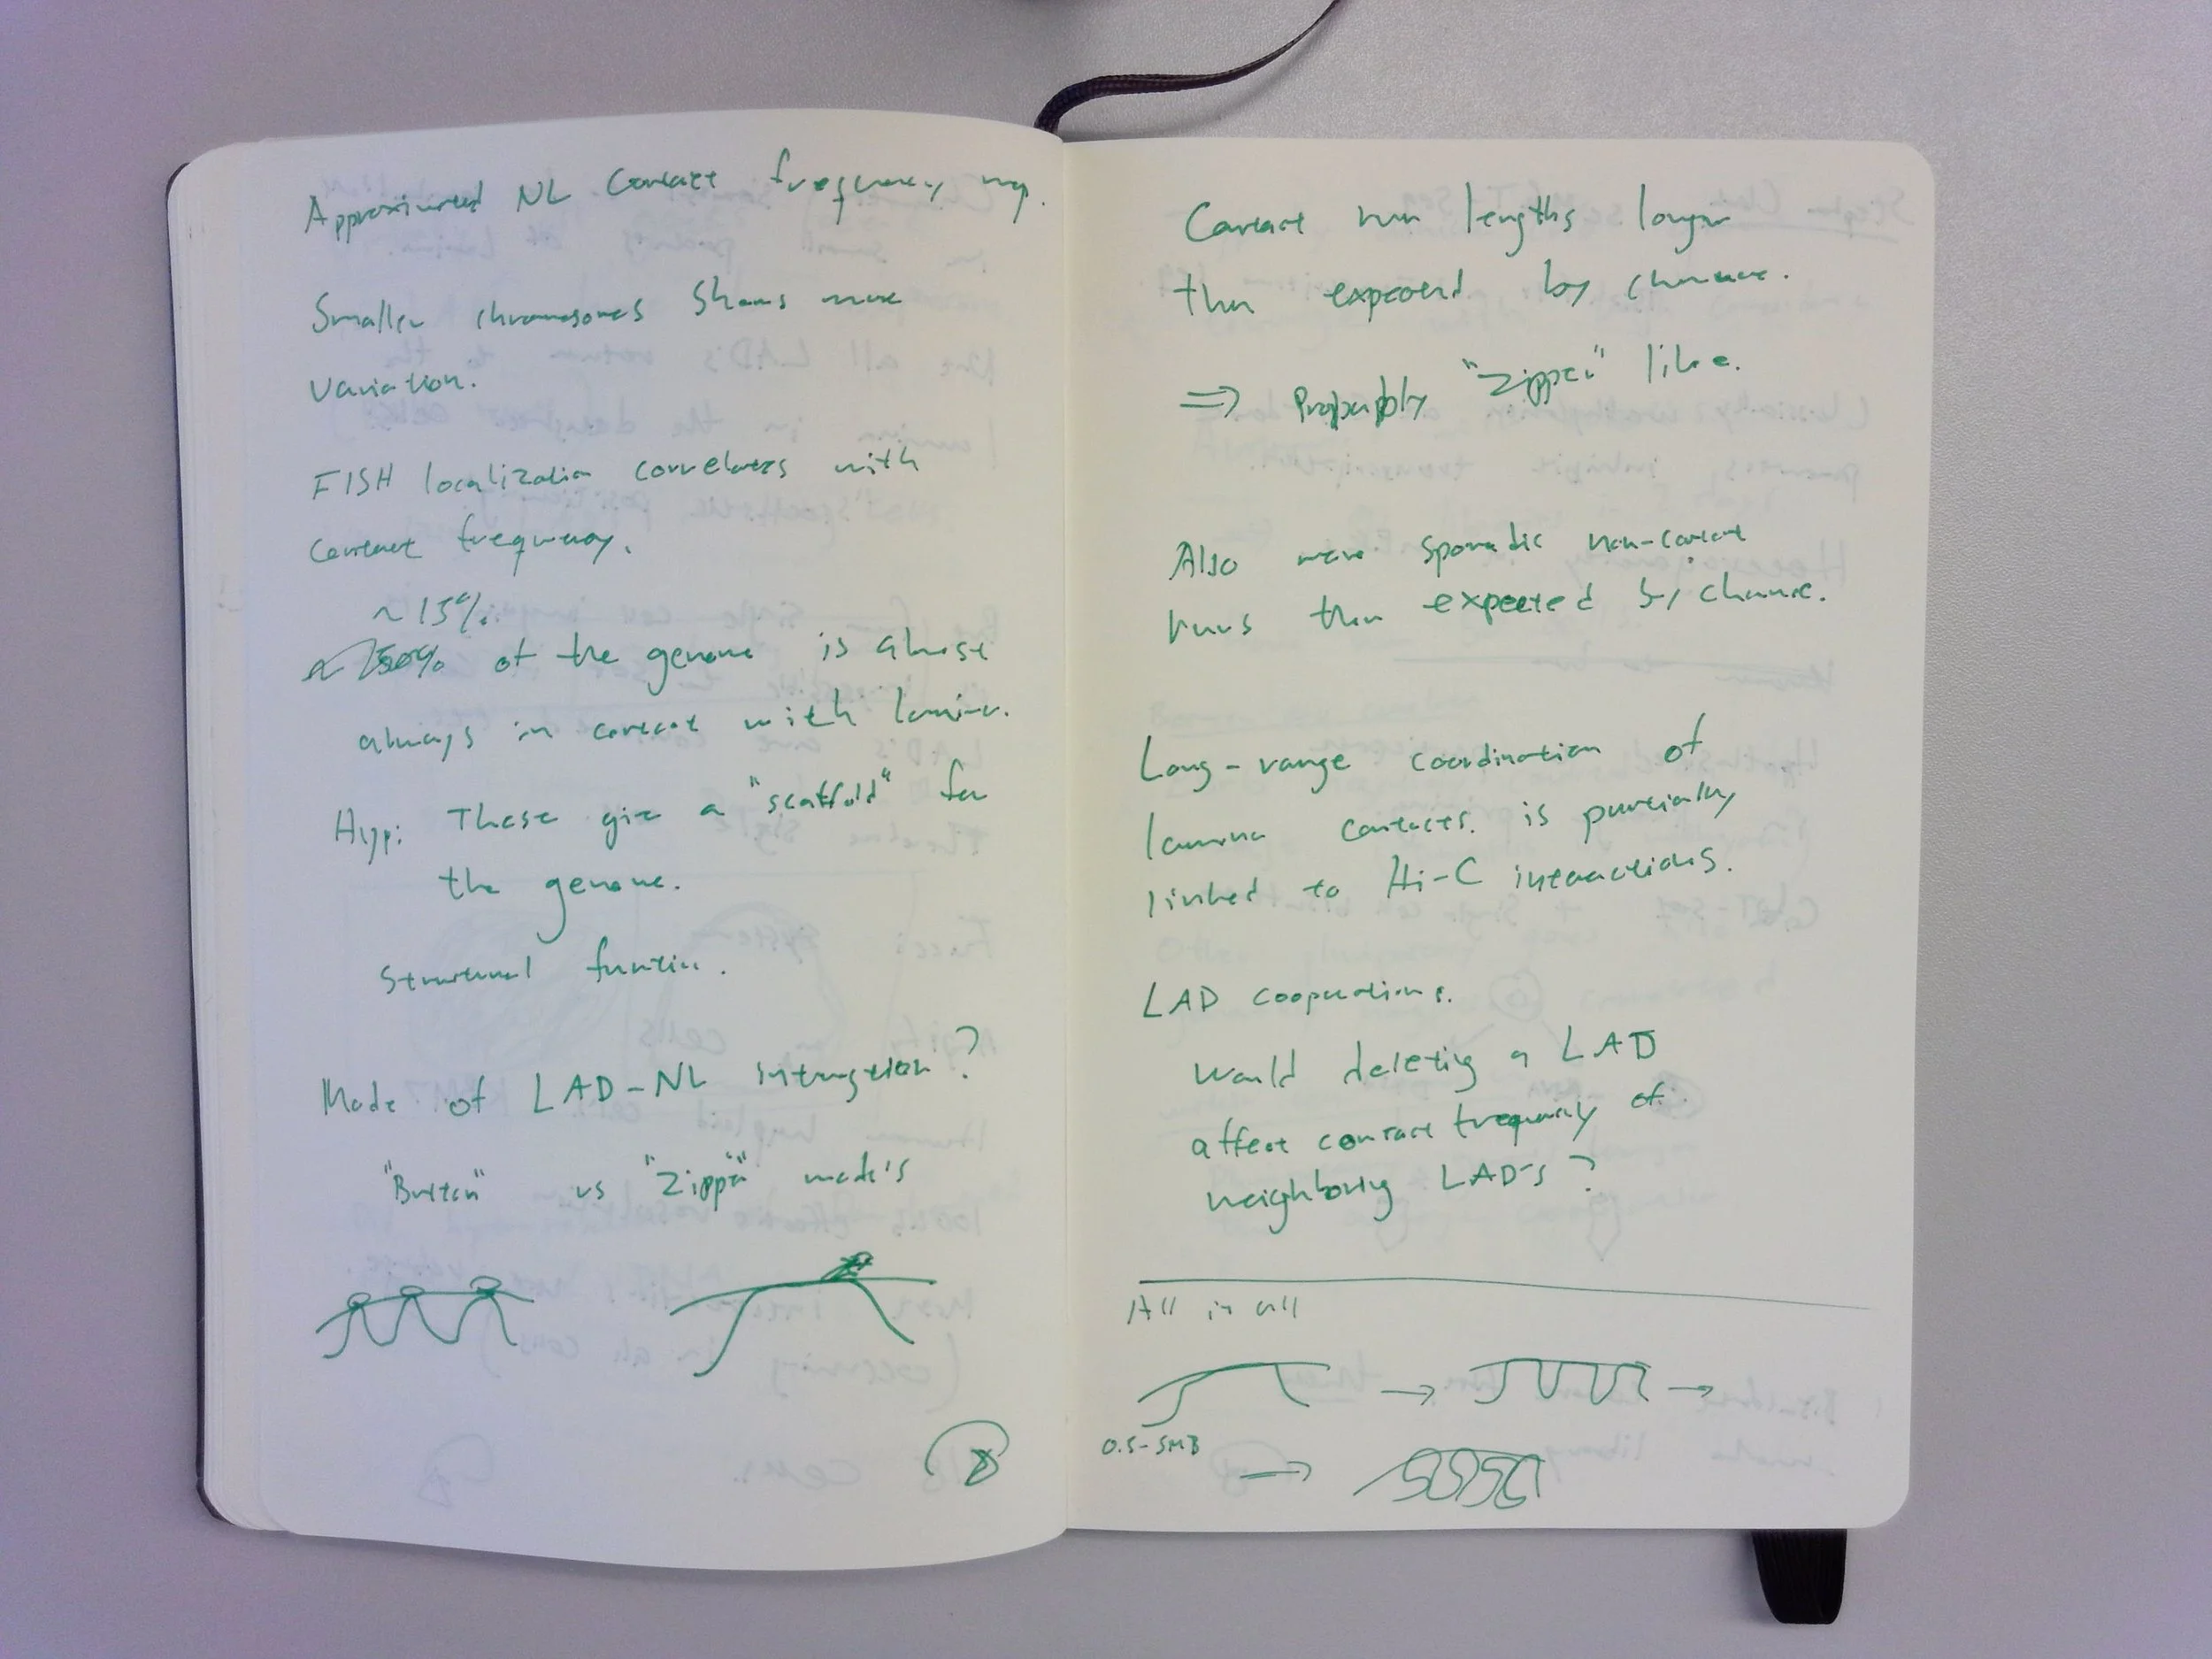 Approximated NL Contact frequency map.
Smaller chromosomes shows more
variation.
FISH localization correlates with
contact frequency.
~15%
of the genome is almost
always in contact with lamina.
Hyp: These give a "scaffold" for
the genome.
Structural function.
Mode of LAD-NL interaction?
"Button" vs "Zipper" models
Contact run lengths longer
than expected by chance.
⇒ Probably "Zipper" like.
Also more sporadic non-contact
runs than expected by chance.
Long-range coordination of
lamina contacts. is partially
linked to Hi-C interactions.
LAD cooperations.
Would deleting a LAD
affect contact frequency of
neighboring LAD's?
All in all
→ →
0.5-5MB
→